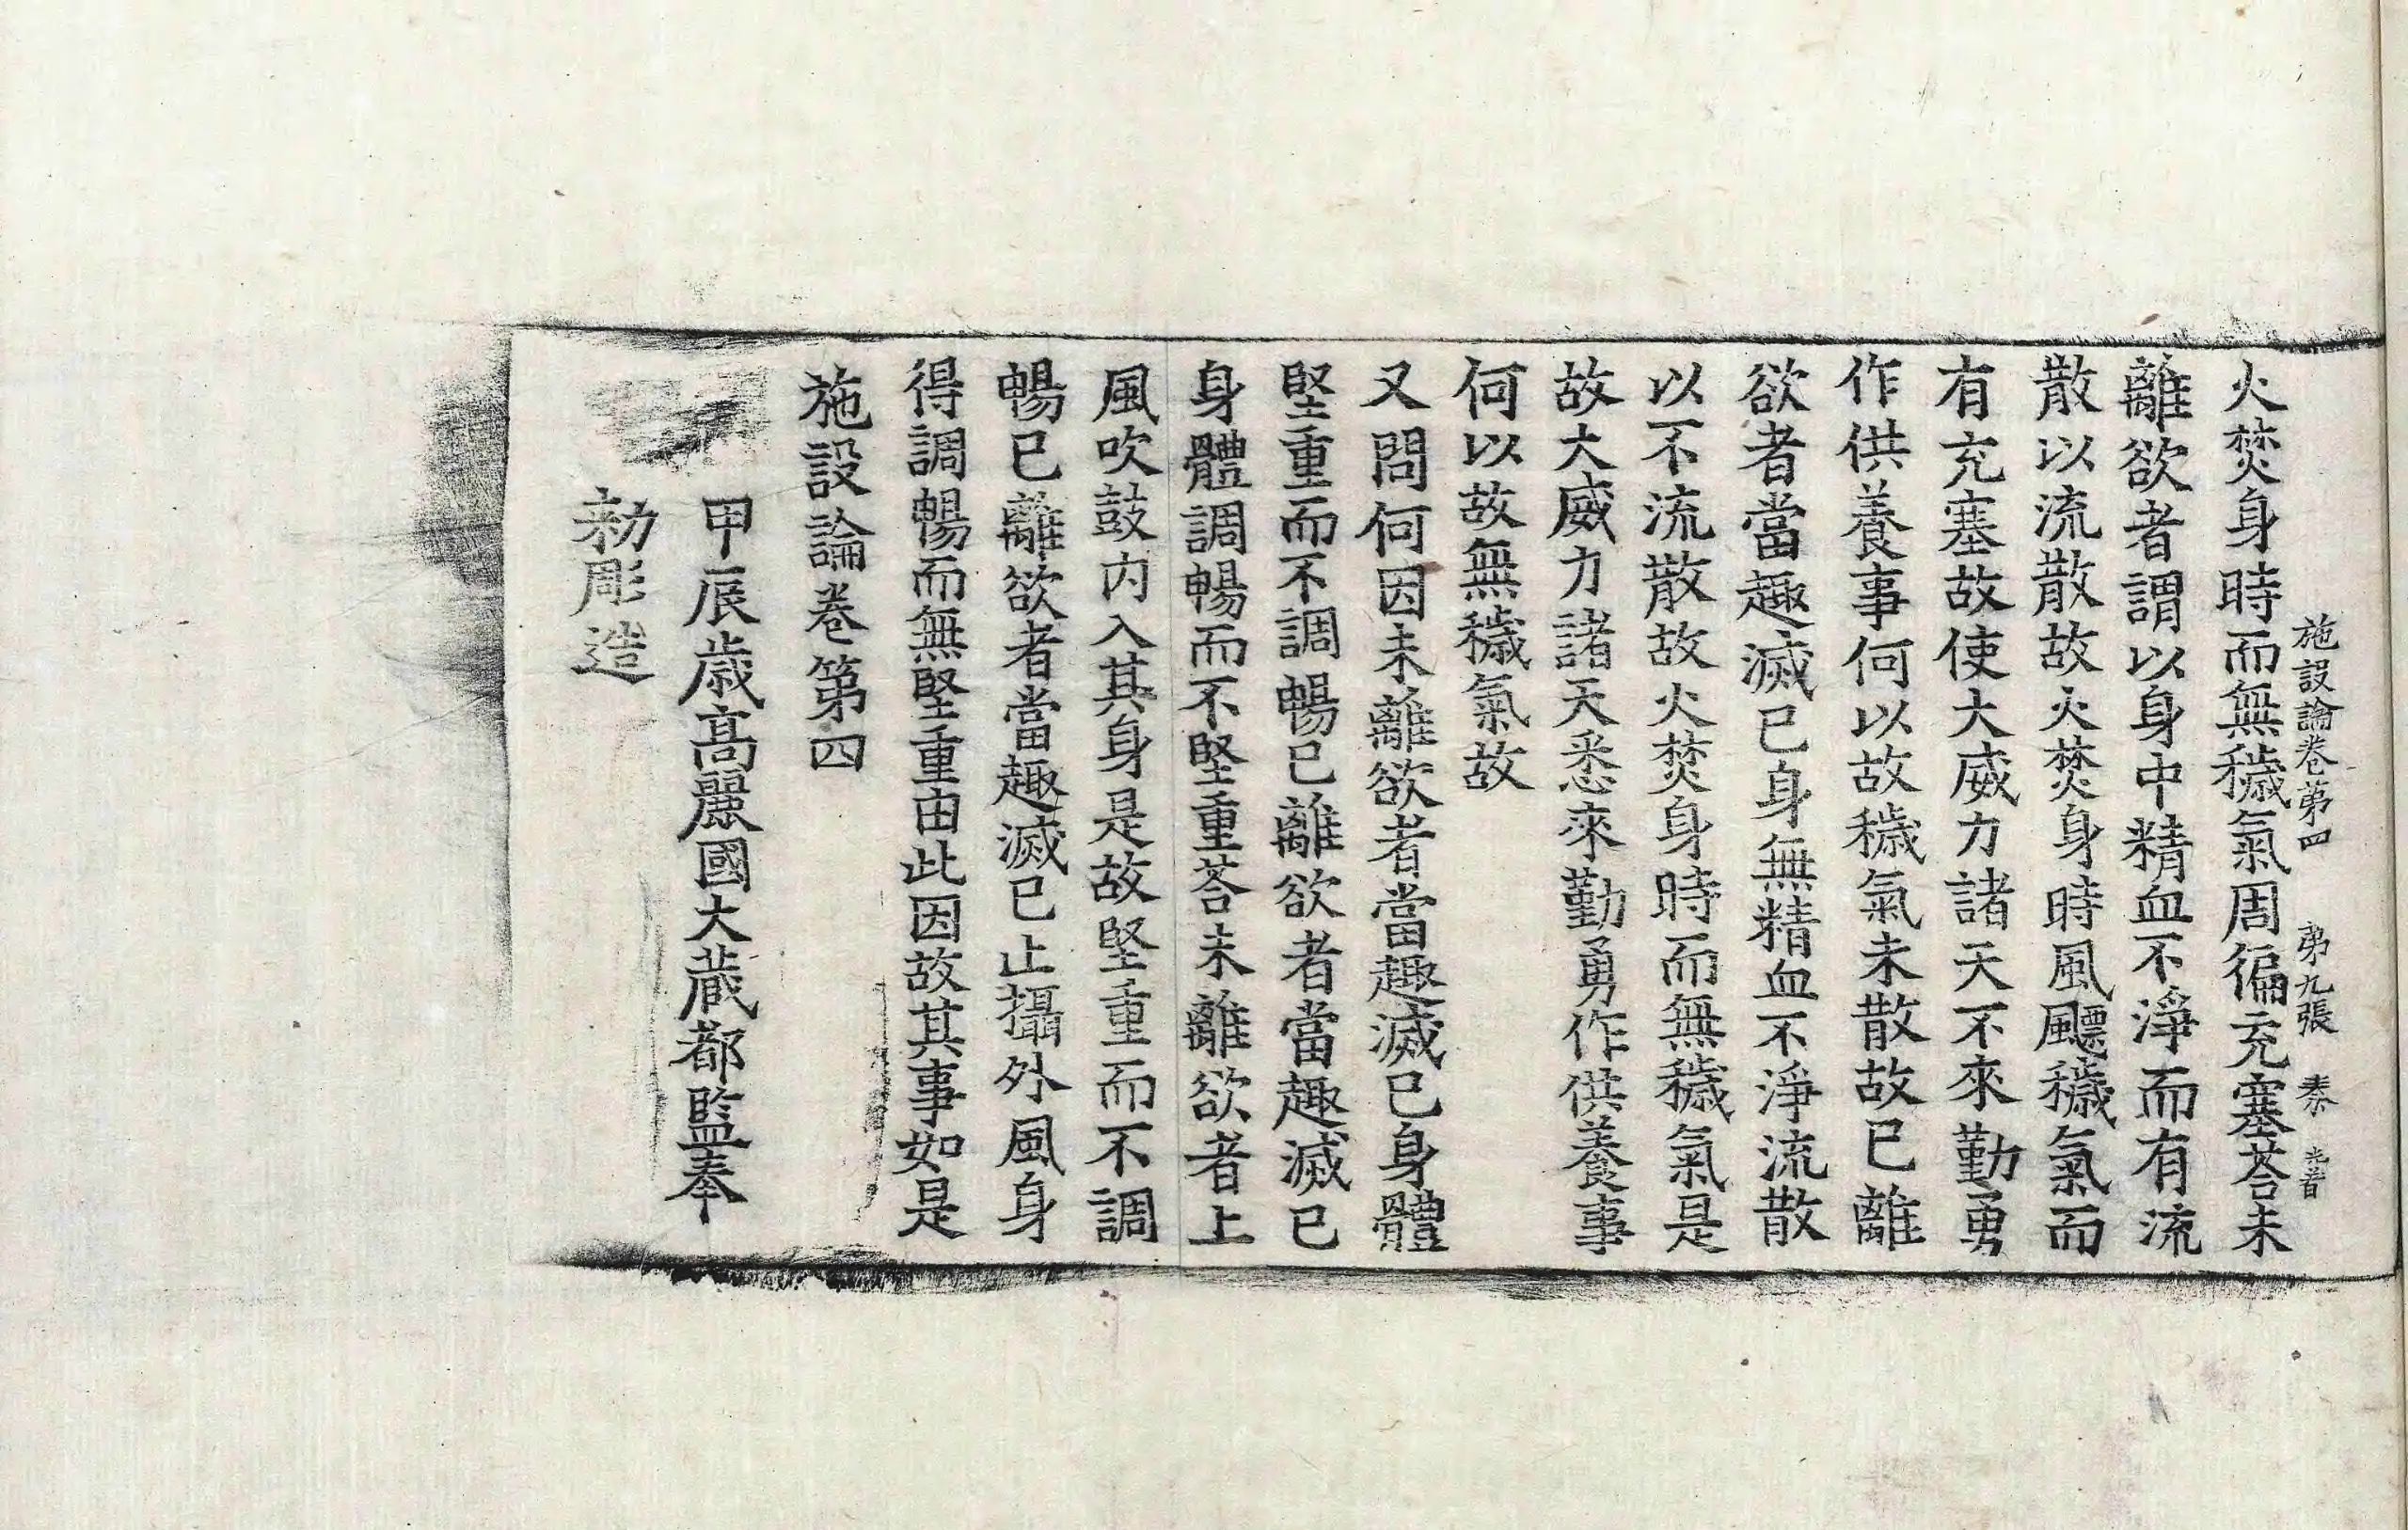 施設論卷第四 第九張 秦 光者
火焚身時而無穢氣周徧充塞荅未
離欲者謂以身中精血不淨而有流
散以流散故火焚身時風飃穢氣而
有充塞故使大威力諸天不來勤勇
作供養事何以故穢氣未散故已離
欲者當趣滅已身無精血不淨流散
以不流散故火焚身時而無穢氣是
故大威力諸天悉來勤勇作供養事
何以故無穢氣故
又問何因未離欲者當趣滅已身體
堅重而不調暢已離欲者當趣滅已
身體調暢而不堅重荅未離欲者上
風吹鼓内入其身是故堅重而不調
暢已離欲者當趣滅已止攝外風身
得調暢而無堅重由此因故其事如是
施設論卷第四
甲辰歳高麗國大藏都監奉
勑彫造